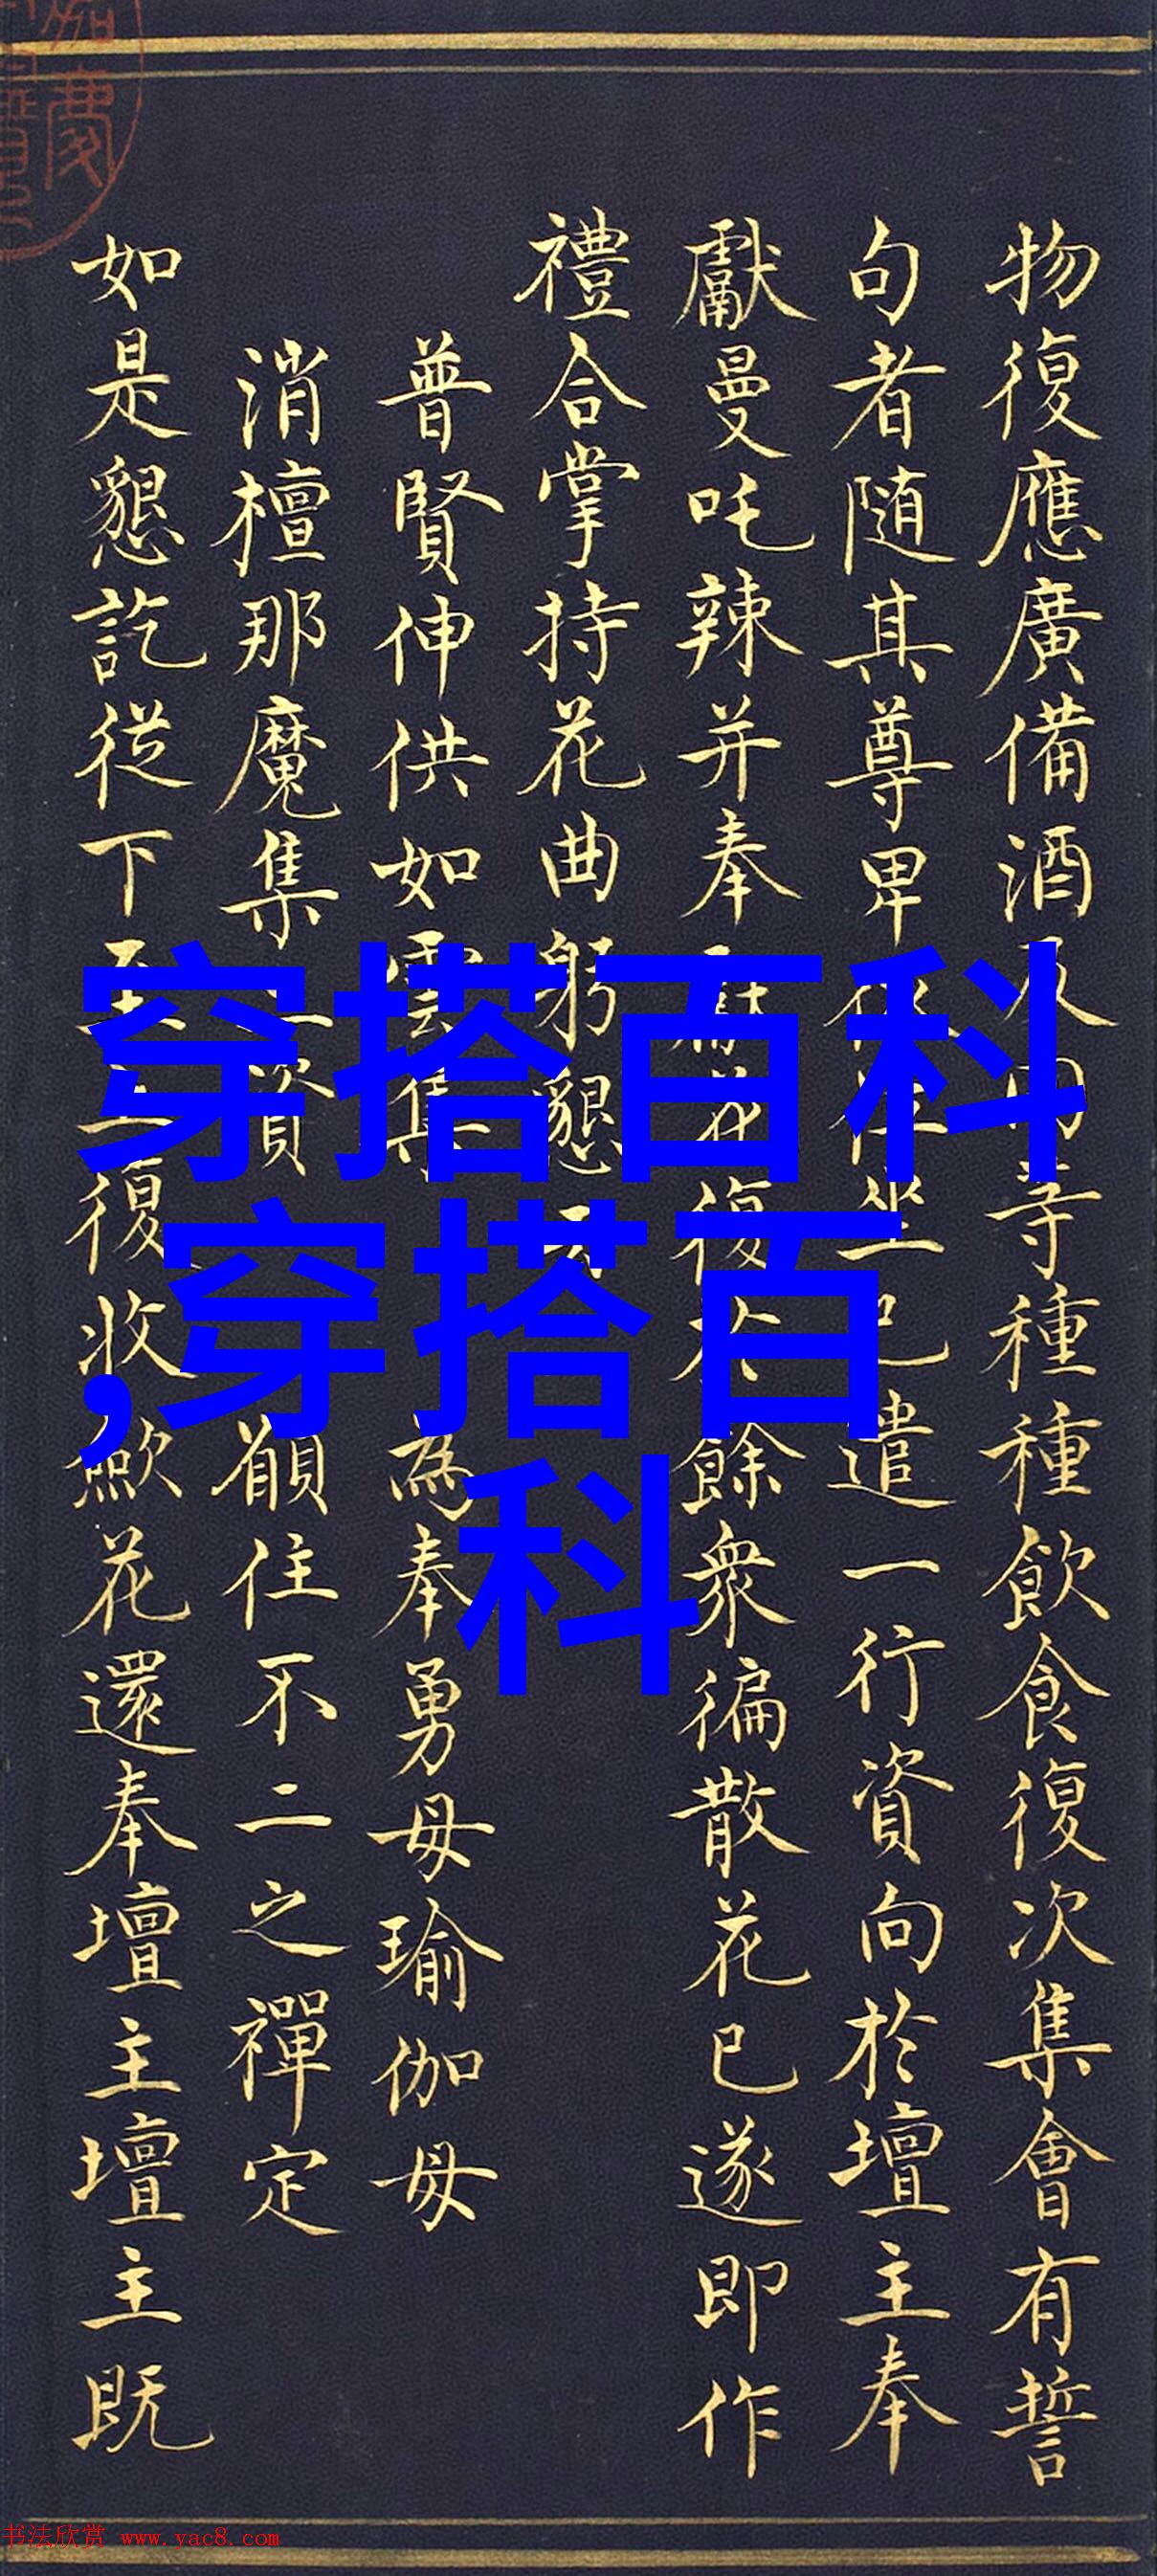 物復應廣備酒及肉等種種飲食復次集會有誓
句者随其尊卑依位坐已遣一行資向於壇主奉
獻曼吒辣并奉獻花復於餘衆徧散花已遂即作
禮合掌持花曲躬懇云
普賢伸供如雲集 為奉勇母瑜伽母
消檀那魔集二資 願住不二之禪定
如是懇訖從下至上復收歛花還奉壇主壇主既
穿搭百科
,穿搭百
科
书法欣赏 www.yac8.com